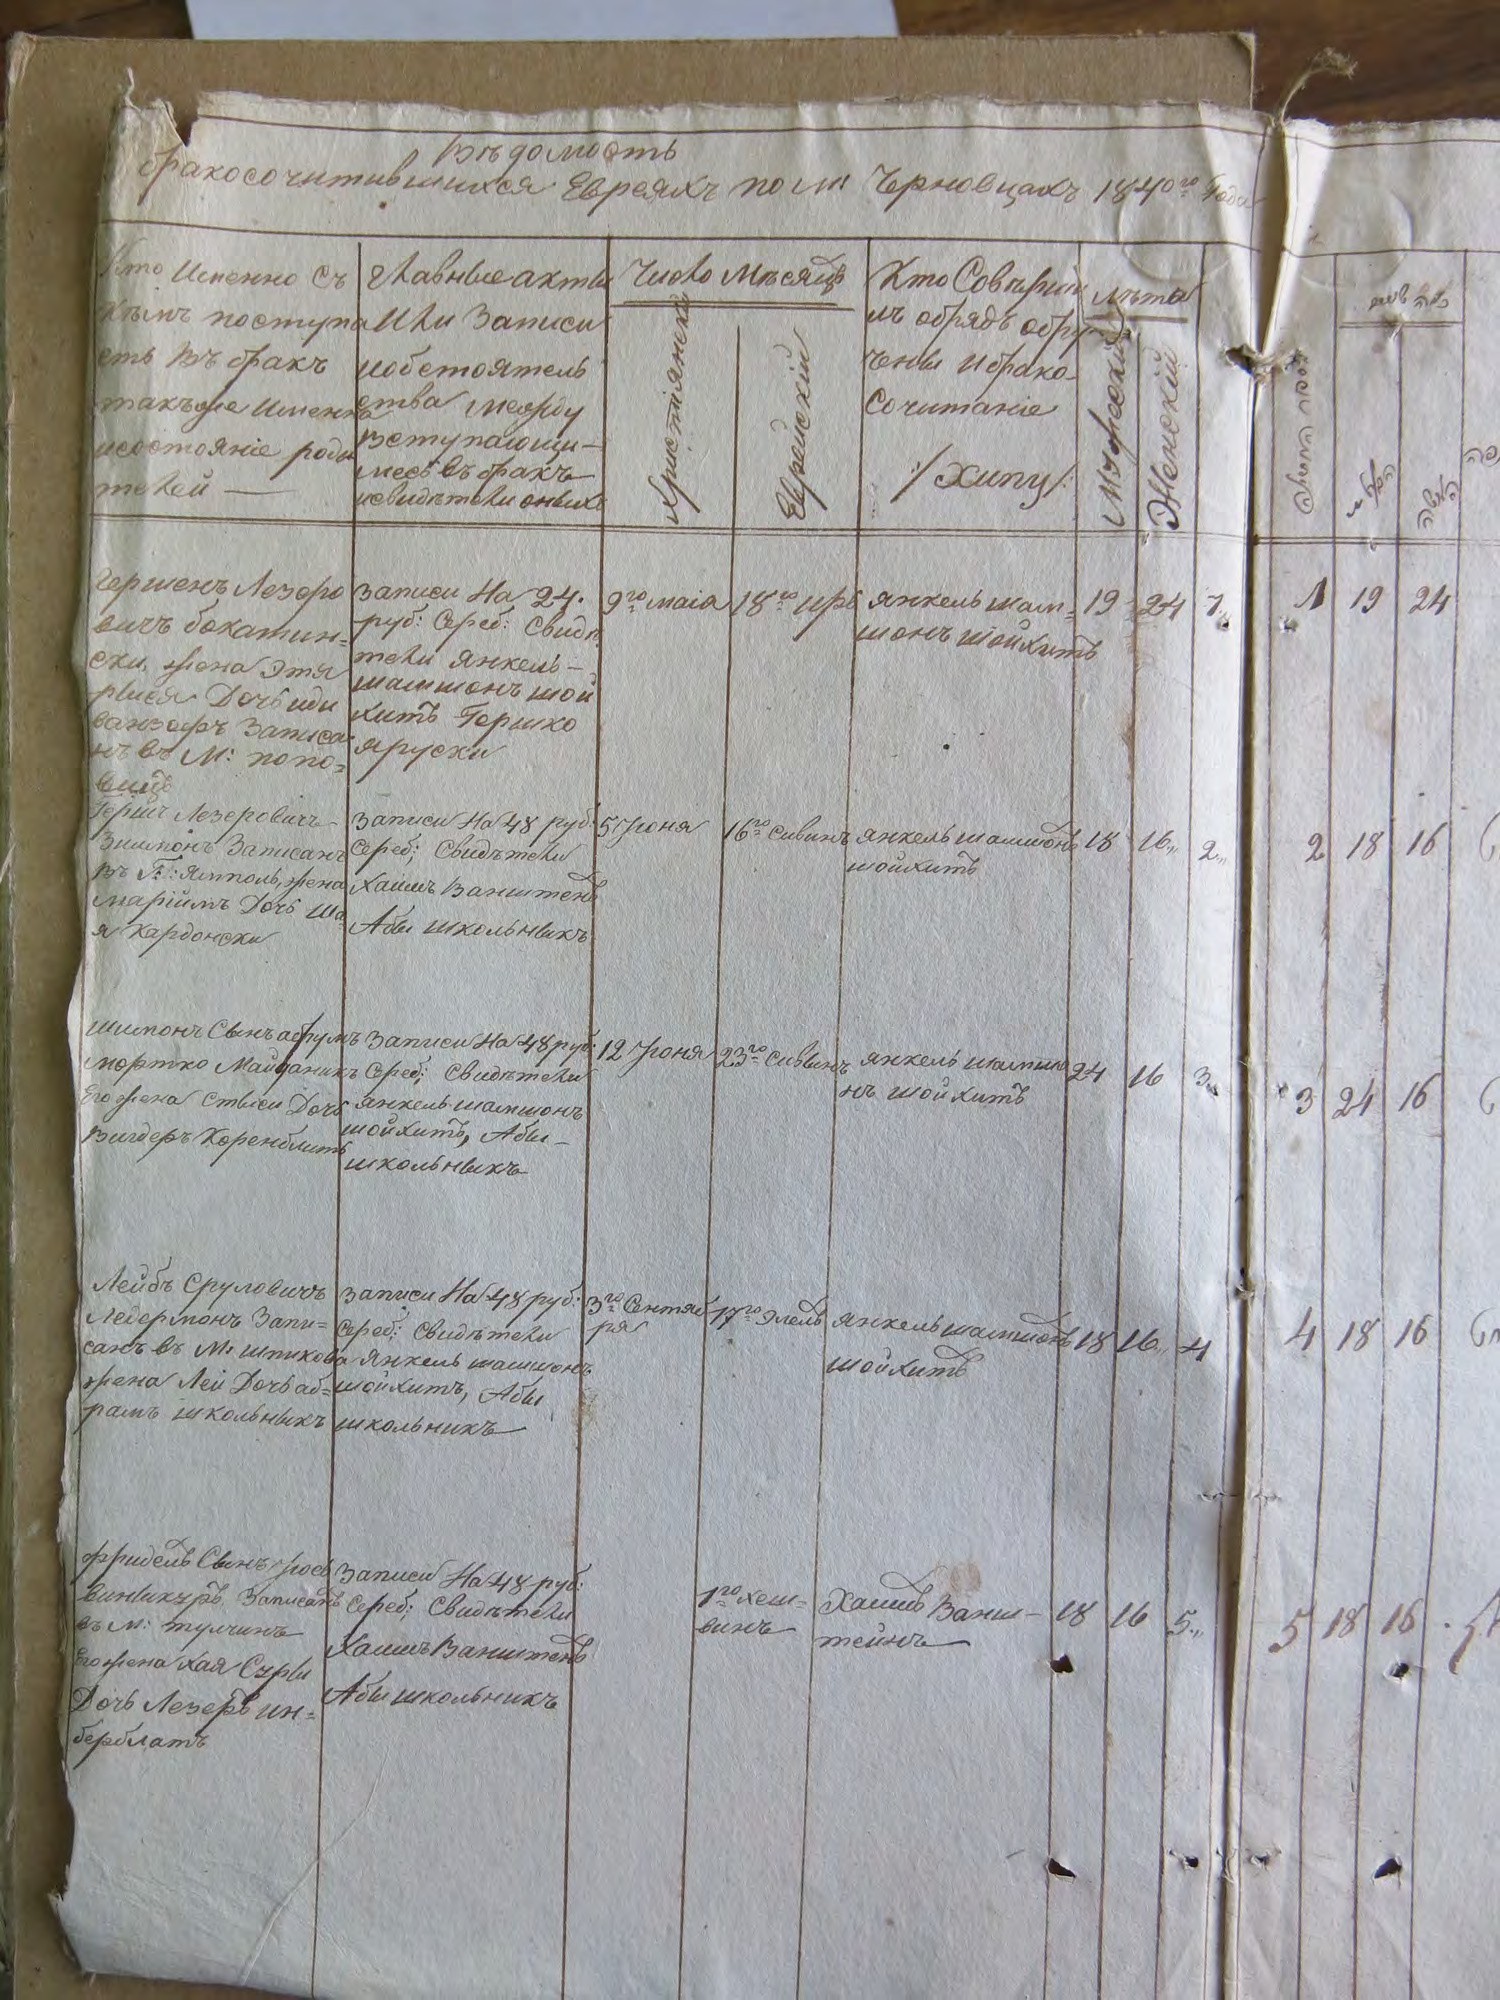 Вѣдомость
бракосочитившихся Евреяхъ по м: Черновцахъ 1840го Года
Кто Именно съ
кѣмъ поступа
еть въ бракъ
такъже Именна
исостояніе роди
телей —
главные акты
Или Записи
иобстоятель
ства между
вступающи-
месь въ бракъ
исвидѣтели оныхъ
Число Мѣсяцъ
Христіянски
Еврейскій
Кто Совѣрши
лъ обрядъ обру
ченны ибрако-
сочитаніе
:/Хипу/:
лѣты
Мужескій
Женскій
Гершенъ Лезеро
вичъ бокатин-
ски, жена Этя
рыся Дочь иди
ванзофъ Записа
нъ въ М: попо-
вицѣ
Записи На 24.
руб: Сереб: Свидѣ
тели Янкель-
шамшонъ шой
хитъ Гершко
яруски
9го маіа
18го Ира
янкель шам-
шонъ шойхитъ
19
24
1„
Герш Лезеровичъ-
Зимонъ Записанъ
въ Г: Ямполь, жена
маріймъ Дочь Ша
я Кардонски
Записи На 48 руб:
Сереб; Свидѣтели
Хаимъ Ванштенъ
Абы школьникъ
5 Іюня
16го сивинъ
янкель шамшонъ
шойхитъ
18
16„
2„
шимонъ Сынъ абрумъ
мортко Майданикъ
Его жена Стыси Дочь
вигдеръ Коренблитъ
Записи На 48 руб:
Сереб; Свидѣтели
янкель шамшонъ
шойхитъ, Абы-
школьникъ
12 Іюня
23го сивинъ
янкель шамшо
нъ шойхитъ
24
16
3„
Лейбъ Сруловичъ
Ледермонъ Запи-
санъ въ М: шпикова
жена Леи Дочь аб-
рамъ школьныкъ
Записи На 48 руб:
Сереб; Свидѣтели
Янкель шамшонъ
шойхитъ, Абы
школьникъ
3го Сентяб
ря
17го Элель
янкель шамшонъ
шойхитъ
18
16„
4
фридель Сынъ Іось
винникуръ Записанъ
въ М: тулчинъ
Его жена Хая Суры
Дочь Лезеръ ин-
берблатъ
Записи На 48 руб:
Сереб; Свидѣтели
Хаимъ Ванштенъ
Абы школьникъ
1го хеш-
винъ
Хаимъ Ванш-
тейнъ
18
16
5„
1 19 24
2 18 16
3 24 16
4 18 16
5 18 16